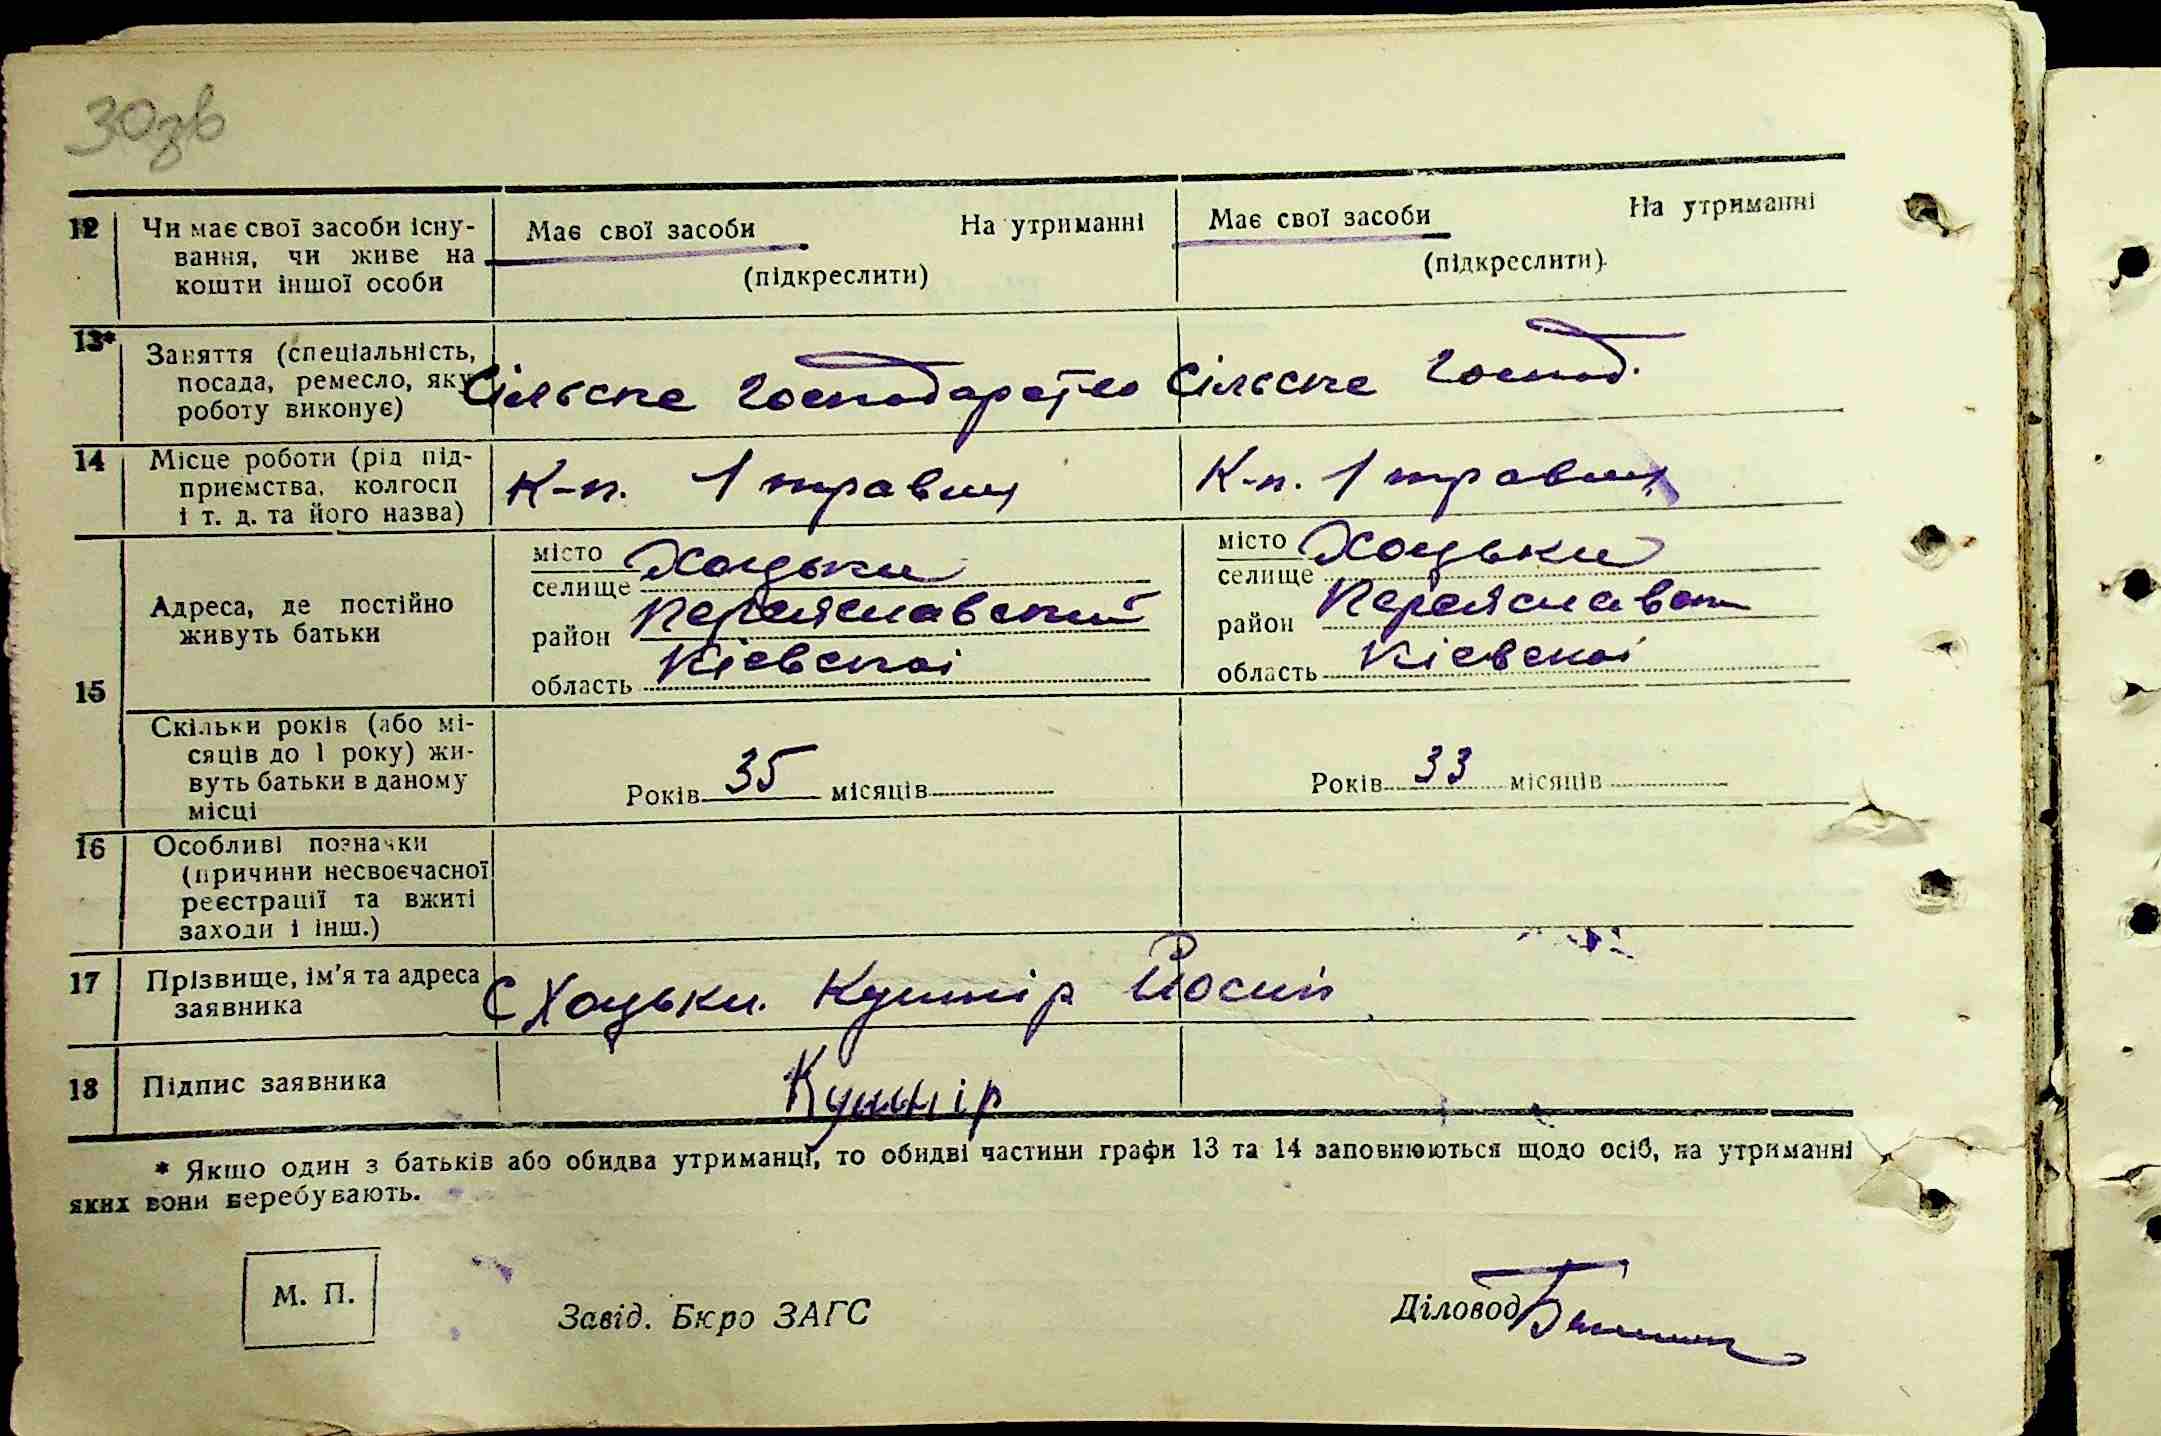 30зв
12 Чи має свої засоби існу- Має свої засоби На утриманні Має свої засоби На утриманні
вання, чи живе на (підкреслити) (підкреслити)
кошти іншої особи
13* Заняття (спеціальність,
посада, ремесло, яку Сільске господарство Сільске господ.
роботу виконує)
14 Місце роботи (рід під-
приємства, колгосп К-п. 1 травня К-п. 1 травня
і т. д. та його назва)
місто Хоцьки місто Хоцьки
селище селище
Адреса, де постійно район Переяславский район Переяславск
живуть батьки
область Кієвскоі область Кієвскоі
15
Скільки років (або мі-
сяців до 1 року) жи-
вуть батьки в даному Років 35 місяців Років 33 місяців
місці
16 Особливі позначки
(причини несвоєчасної
реєстрації та вжиті
заходи і інш.)
17 Прізвище, ім'я та адреса С Хоцьки. Кушнір Йосип
заявника
18 Підпис заявника Кушнір
* Якщо один з батьків або обидва утриманці, то обидві частини графи 13 та 14 заповнюються щодо осіб, на утриманні
яких вони перебувають.
М. П.
Завід. Бюро ЗАГС Діловод